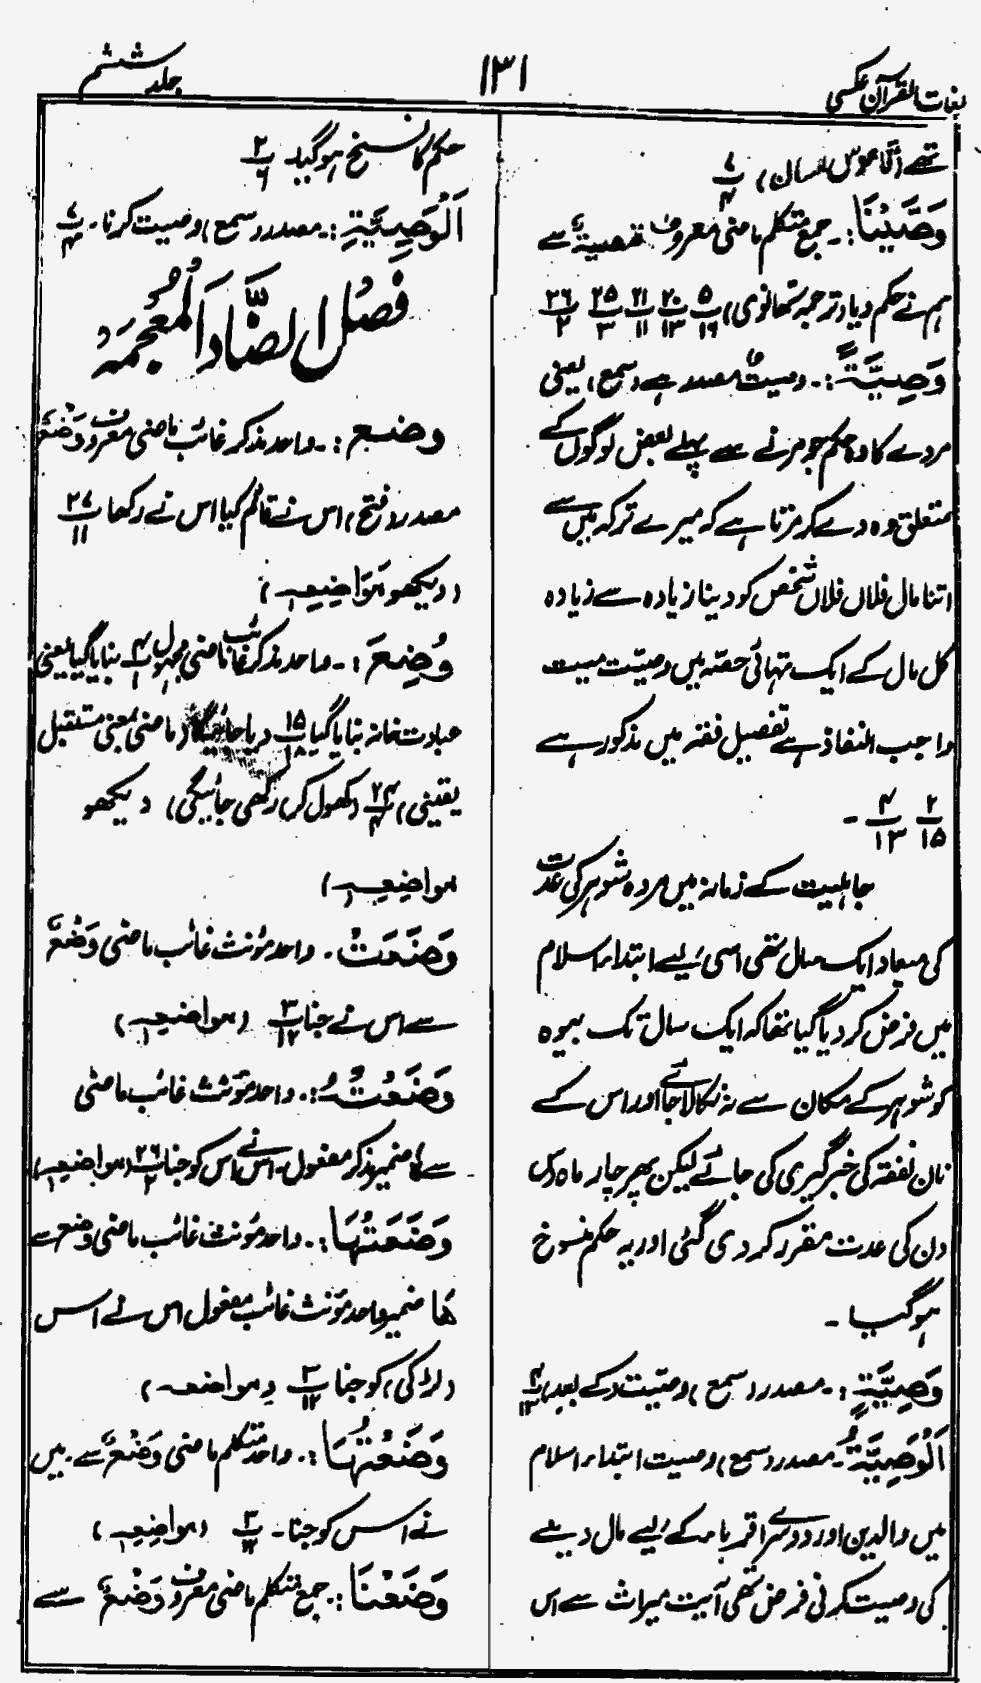 لغات القرآن عکسی
۱۳۱
جلد ششم
تھے (قاموس لسان) ۷/۴
وَصَّیْنَا:۔ جمع متکلم ماضی معروف تَوْصِیَۃٌ سے
ہم نے حکم دیا (ترجمہ تھانوی) ۵/۱۶ ۲۰/۱۳ ۲۱/۱۱ ۲۵/۳ ۲۶/۲
وَصِیَّۃً:۔ وصیت مصدر ہے (سمع) یعنی
مردے کا وہ حکم جو مرنے سے پہلے بعض لوگوں کے
متعلق وہ دے کر مرتا ہے کہ میرے ترکہ میں سے
اتنا مال فلاں فلاں شخص کو دینا زیادہ سے زیادہ
کل مال کے ایک تہائی حصّہ میں وصیّت میت
واجب النفاذ ہے تفصیل فقہ میں مذکور ہے
۲/۱۵ ۴/۱۳ ۔
جاہلیت کے زمانہ میں مردہ شوہر کی عدت
کی میعاد ایک سال تھی اسی لیے ابتداء اسلام
میں فرض کر دیا گیا تھا کہ ایک سال تک بیوہ
کو شوہر کے مکان سے نہ نکالا جائے اور اس کے
نان نفقہ کی خبر گیری کی جائے لیکن پھر چار ماہ دس
دن کی عدت مقرر کر دی گئی اور یہ حکم منسوخ
ہو گیا ۔
وَصِیَّۃٍ:۔ مصدر (سمع) وصیّت کے بعد ۴/۱۳
اَلْوَصِیَّۃُ:۔ مصدر (سمع) وصیت ابتداء اسلام
میں والدین اور دوسرے اقرباء کے لیے مال دینے
کی وصیت کرنی فرض تھی آیت میراث سے اس
حکم کا نسخ ہو گیا۔ ۲/۶
اَلْوَصِیَّۃِ:۔ مصدر (سمع) وصیت کرنا۔ ۷/۴
فصل الضّاد المُعجمہ
وضع:۔ واحد مذکر غائب ماضی معروف وَضْعٌ
مصدر (فتح) اس نے قائم کیا اس نے رکھا ۲۷/۱۱
(دیکھو مَوَاضِعِہٖ)
وُضِعَ:۔ واحد مذکر غائب ماضی مجہول ۴/۱ بنایا گیا یعنی
عبادت خانہ بنایا گیا ۱۵/۱۸ دیا جائیگا (ماضی بمعنی مستقبل
یقینی) ۲۴/۴ (کھول کر رکھی جائیگی) دیکھو
مواضعِہٖ)
وَضَعَتْ۔ واحد مؤنث غائب ماضی وَضْعٌ
سے اس نے جنا ۳/۱۲ (مواضعِہٖ)
وَضَعَتْہُ:۔ واحد مؤنث غائب ماضی
سے ہٗ ضمیر مذکر مفعول۔ اس نے اس کو جنا ۲۶/۲ (مواضعِہٖ)
وَضَعَتْہَا:۔ واحد مؤنث غائب ماضی وضع سے
ھَا ضمیر واحد مؤنث غائب مفعول اس نے اس
(لڑکی) کو جنا ۳/۱۲ (مواضعہ)
وَضَعْتُہَا:۔ واحد متکلم ماضی وَضْعٌ سے۔ میں
نے اس کو جنا۔ ۳/۱۲ (مواضِعِہٖ)
وَضَعْنَا:۔ جمع متکلم ماضی معروف وَضْعٌ سے